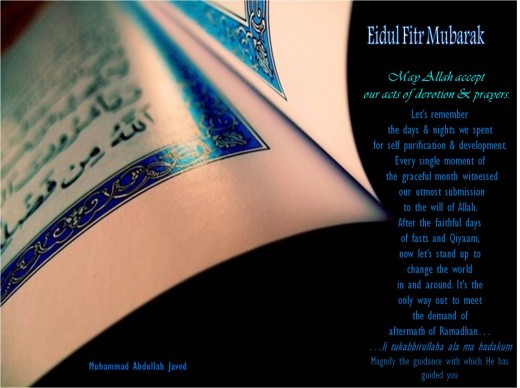 Eidul Fitr Mubarak
May Allah accept
our acts of devotion & prayers.
Let's remember
the days & nights we spent
for self purification & development.
Every single moment of
the graceful month witnessed
our utmost submission
to the will of Allah.
After the faithful days
of fasts and Qiyaam,
now let's stand up to
change the world
in and around. It's the
only way out to meet
the demand of
aftermath of Ramadhan…
…li tukabbirullaha ala ma hadakum
Magnify the guidance with which He has
guided you
Muhammad Abdullah Javed
اللَّهَ مِن فَضْلِ